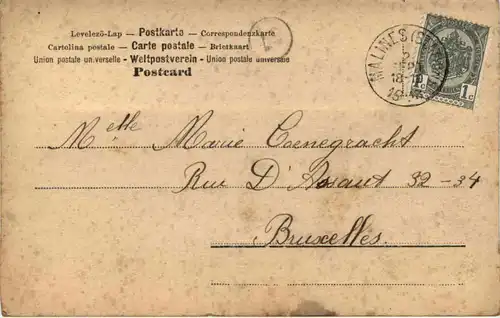 Levelező-Lap — Postkarta — Correspondenzkarte
Cartolina postale — Carte postale — Briefkaart
Union postale universelle — Weltpostverein — Union postale universelle
Postcard
MALINES
18-19
1 c 1 c
Melle Marie Coenegracht
Rue D'Assaut 32-34
Bruxelles.